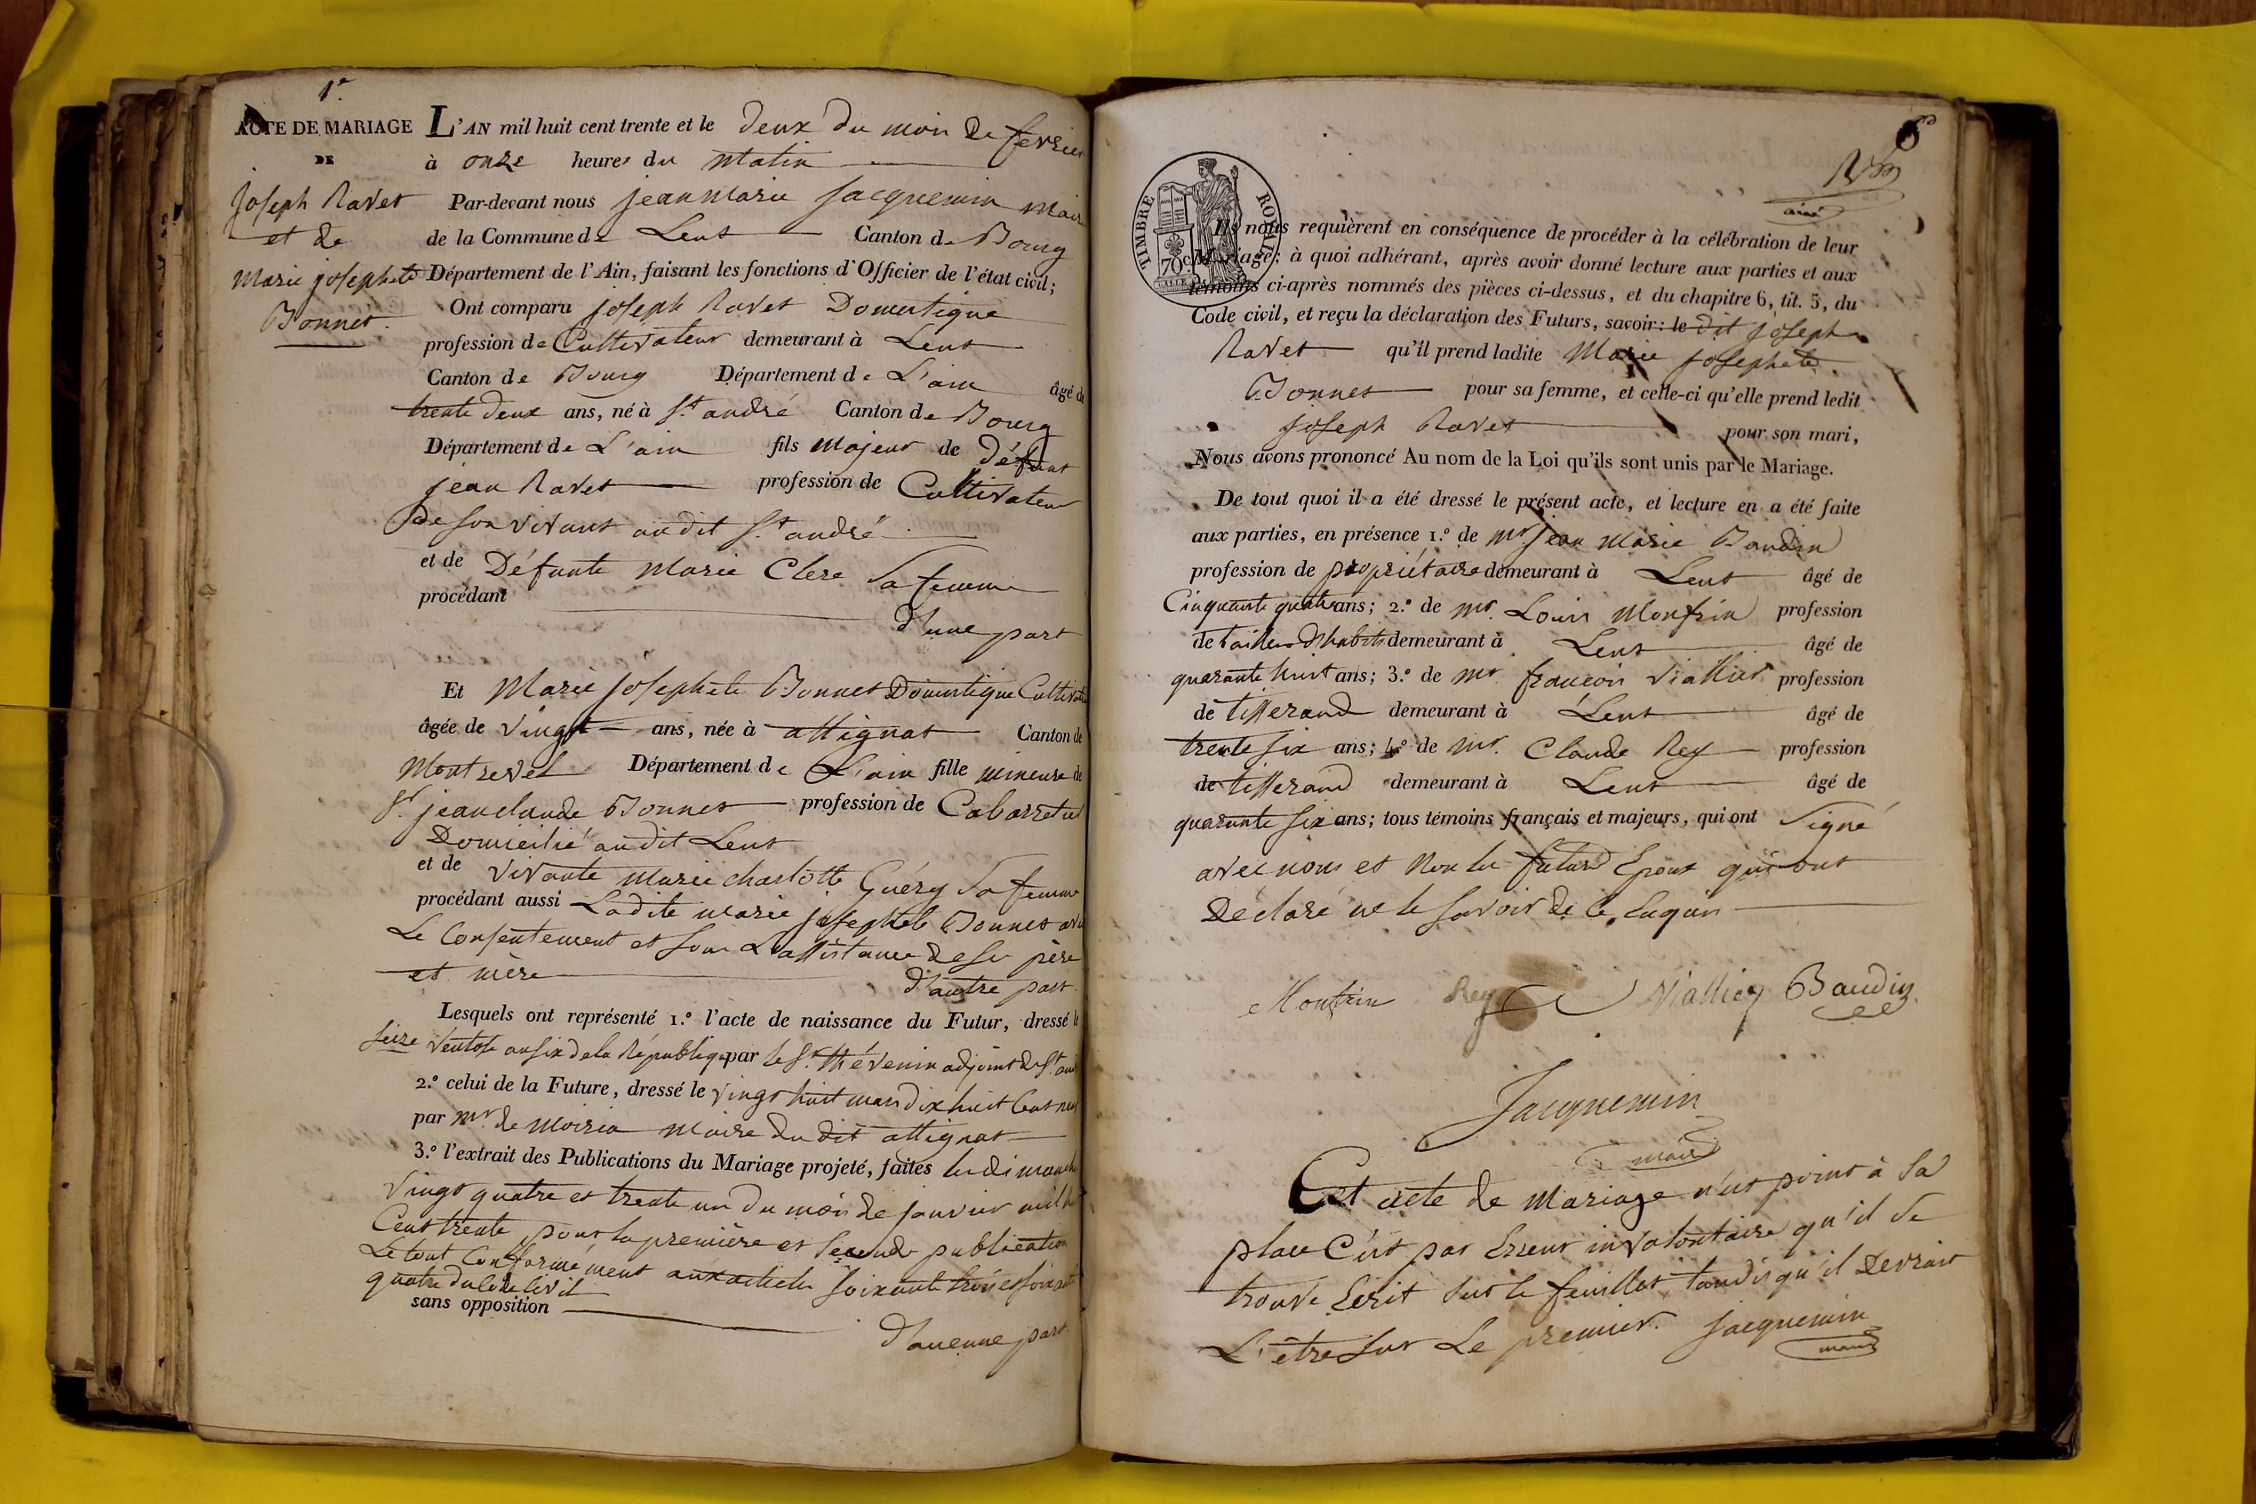 1.e
ACTE DE MARIAGE
DE
Joseph Ravet
et de
Marie josephete
Bonnet.
L'AN mil huit cent trente et le deux du mois de fevrier
à onze heures du Matin
Par-devant nous jean marie Jacquemin Maire
de la Commune de Lent Canton de Bourg
Département de l'Ain, faisant les fonctions d'Officier de l'état civil;
Ont comparu joseph Ravet Domestique
profession de Cultivateur demeurant à Lent
Canton de Bourg Département de L'ain âgé de
trente deux ans, né à St. andré Canton de Bourg
Département de L'ain fils Majeur de défunt
jean Ravet profession de Cultivateur
De son vivant audit St. andré
et de Défunte Marie Clere Sa femme
procédant
d'une part
Et Marie josephete Bonnet Domestique Cultivat
âgée de vingt ans, née à attignat Canton de
Montrevel Département de L'ain fille mineure de
Sr. jean claude Bonnet profession de Cabarretier
Domicilié audit Lent
et de vivante marie charlotte Guéry Sa femme
procédant aussi Ladite marie josephete Bonnet avec
Le Consentement et sous L'assistance de ses père
et mère
d'autre part.
Lesquels ont représenté 1.º l'acte de naissance du Futur, dressé le
Seize Ventose an six de la République par le Sr. thévenin adjoint de St. and
2.º celui de la Future, dressé le vingt huit mars dix huit Cent neuf
par Mr. de Moiria Maire du dit attignat
3.º l'extrait des Publications du Mariage projeté, faites les dimanche
vingt quatre et trente un du mois de janvier mil h
Cent trente pour la première et Seconde publication
Le tout Conformément aux articles soixante trois et soixante
quatre du Code Civil
sans opposition
d'aucune part.
6
TIMBRE ROYAL
70 c.
Ils nous requièrent en conséquence de procéder à la célébration de leur
Mariage; à quoi adhérant, après avoir donné lecture aux parties et aux
témoins ci-après nommés des pièces ci-dessus, et du chapitre 6, tit. 5, du
Code civil, et reçu la déclaration des Futurs, savoir: le dit joseph
Ravet qu'il prend ladite Marie josephete
Bonnet pour sa femme, et celle-ci qu'elle prend ledit
joseph Ravet pour son mari,
Nous avons prononcé Au nom de la Loi qu'ils sont unis par le Mariage.
De tout quoi il a été dressé le présent acte, et lecture en a été faite
aux parties, en présence 1.º de Mr jean Marie Baudin
profession de propriétaire demeurant à Lent âgé de
Cinquante quatre ans; 2.º de Mr. Louis Monfrin profession
de tailleur d'habits demeurant à Lent âgé de
quarante huit ans; 3.º de Mr. françois Viallier profession
de tisserand demeurant à Lent âgé de
trente six ans; 4.º de Mr. Claude Rey profession
de tisserand demeurant à Lent âgé de
quarante six ans; tous témoins français et majeurs, qui ont Signé
avec nous et Non les futurs Epoux qui ont
Déclaré ne le savoir de Ce Enquis
Monfrin Rey Viallier Baudin
Jacquemin
maire
Cet acte de Mariage n'est point à Sa
place C'est par Erreur involontaire qu'il se
trouve Ecrit sur le feuillet, tandis qu'il Devrait
L'être sur Le premier. Jacquemin
maire